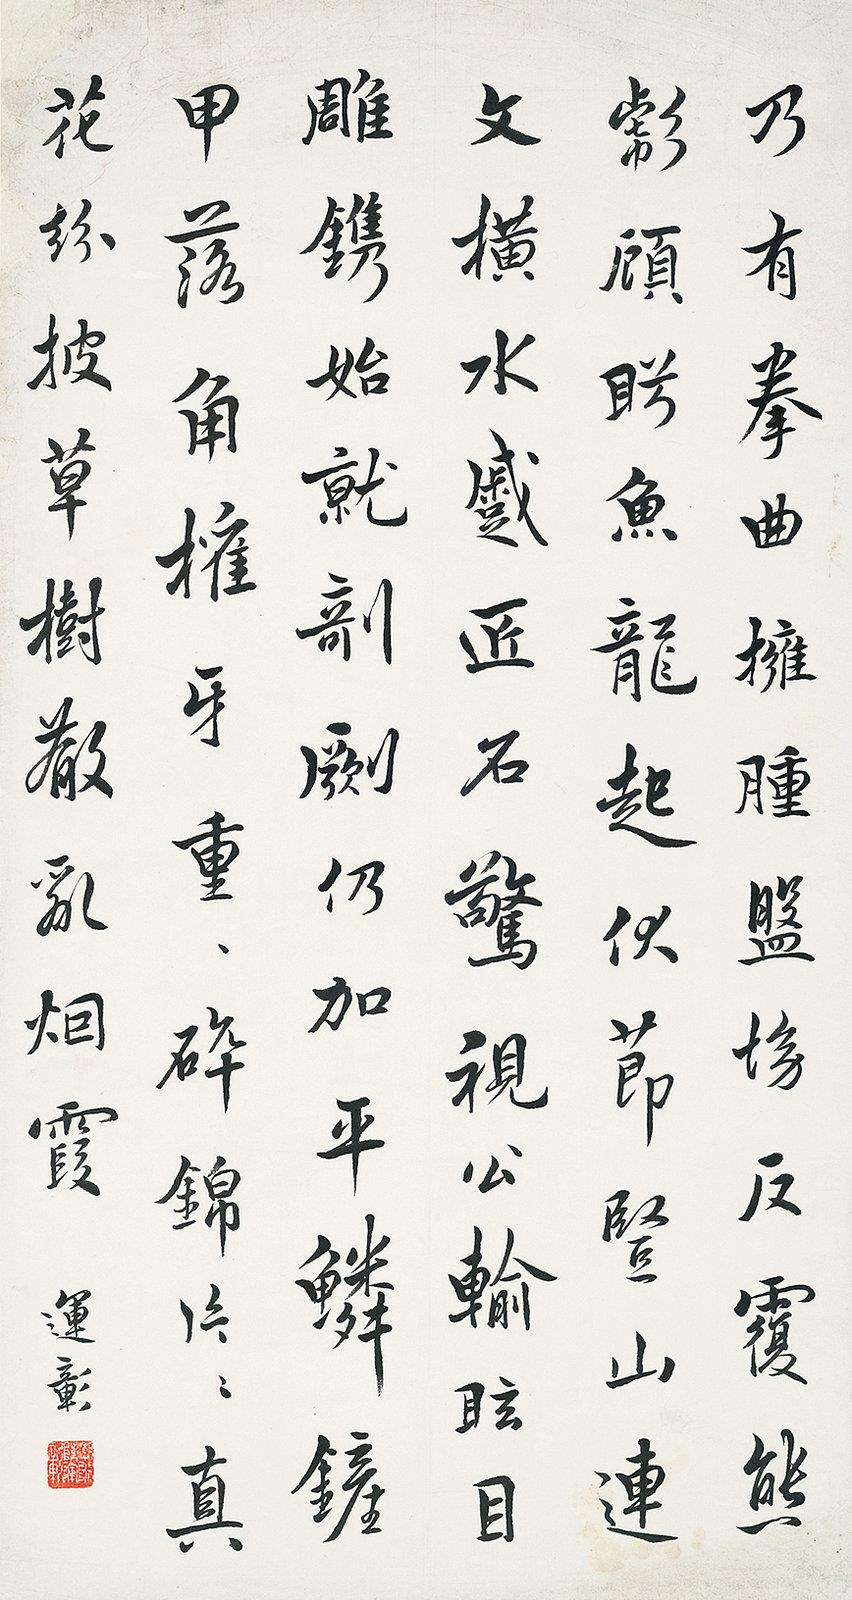 乃有拳曲擁腫盤坳反覆熊
彪顧盼魚龍起伏節豎山連
文橫水蹙匠石驚視公輸眩目
雕鐫始就剞劂仍加平鱗鏟
甲落角摧牙重、碎錦片、真
花紛披草樹散亂烟霞
運彰